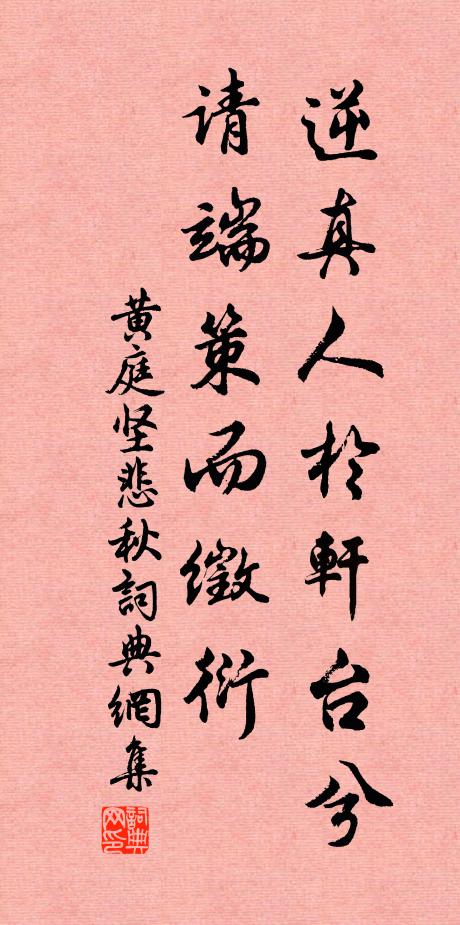 逆真人於軒台兮
请端策而徵衍
黄庭坚悲秋詞典網集
詞典网印